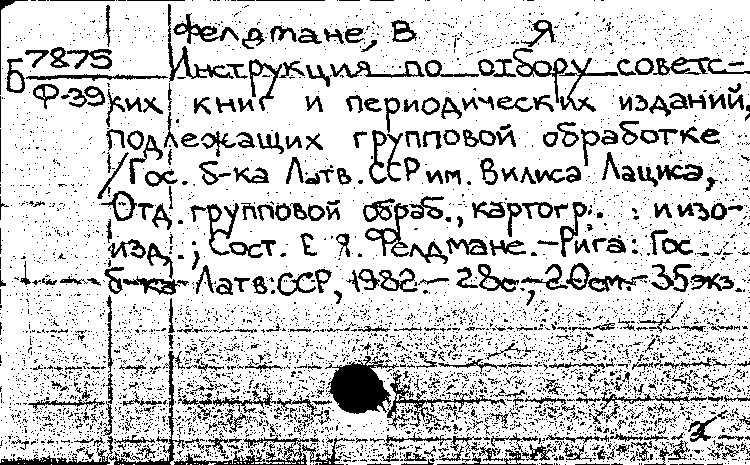 Фелдмане, В Я
Б 7875
Ф-39
Инструкция по отбору советс-
ких книг и периодических изданий,
подлежащих групповой обработке
/Гос. б-ка Латв. ССР им. Вилиса Лациса,
Отд. групповой обраб., картогр. и изо-
изд.; Сост. В Я. Фелдмане.-Рига: Гос.
б-ка Латв. ССР, 1982.- 28с.; 20см.- 35экз.